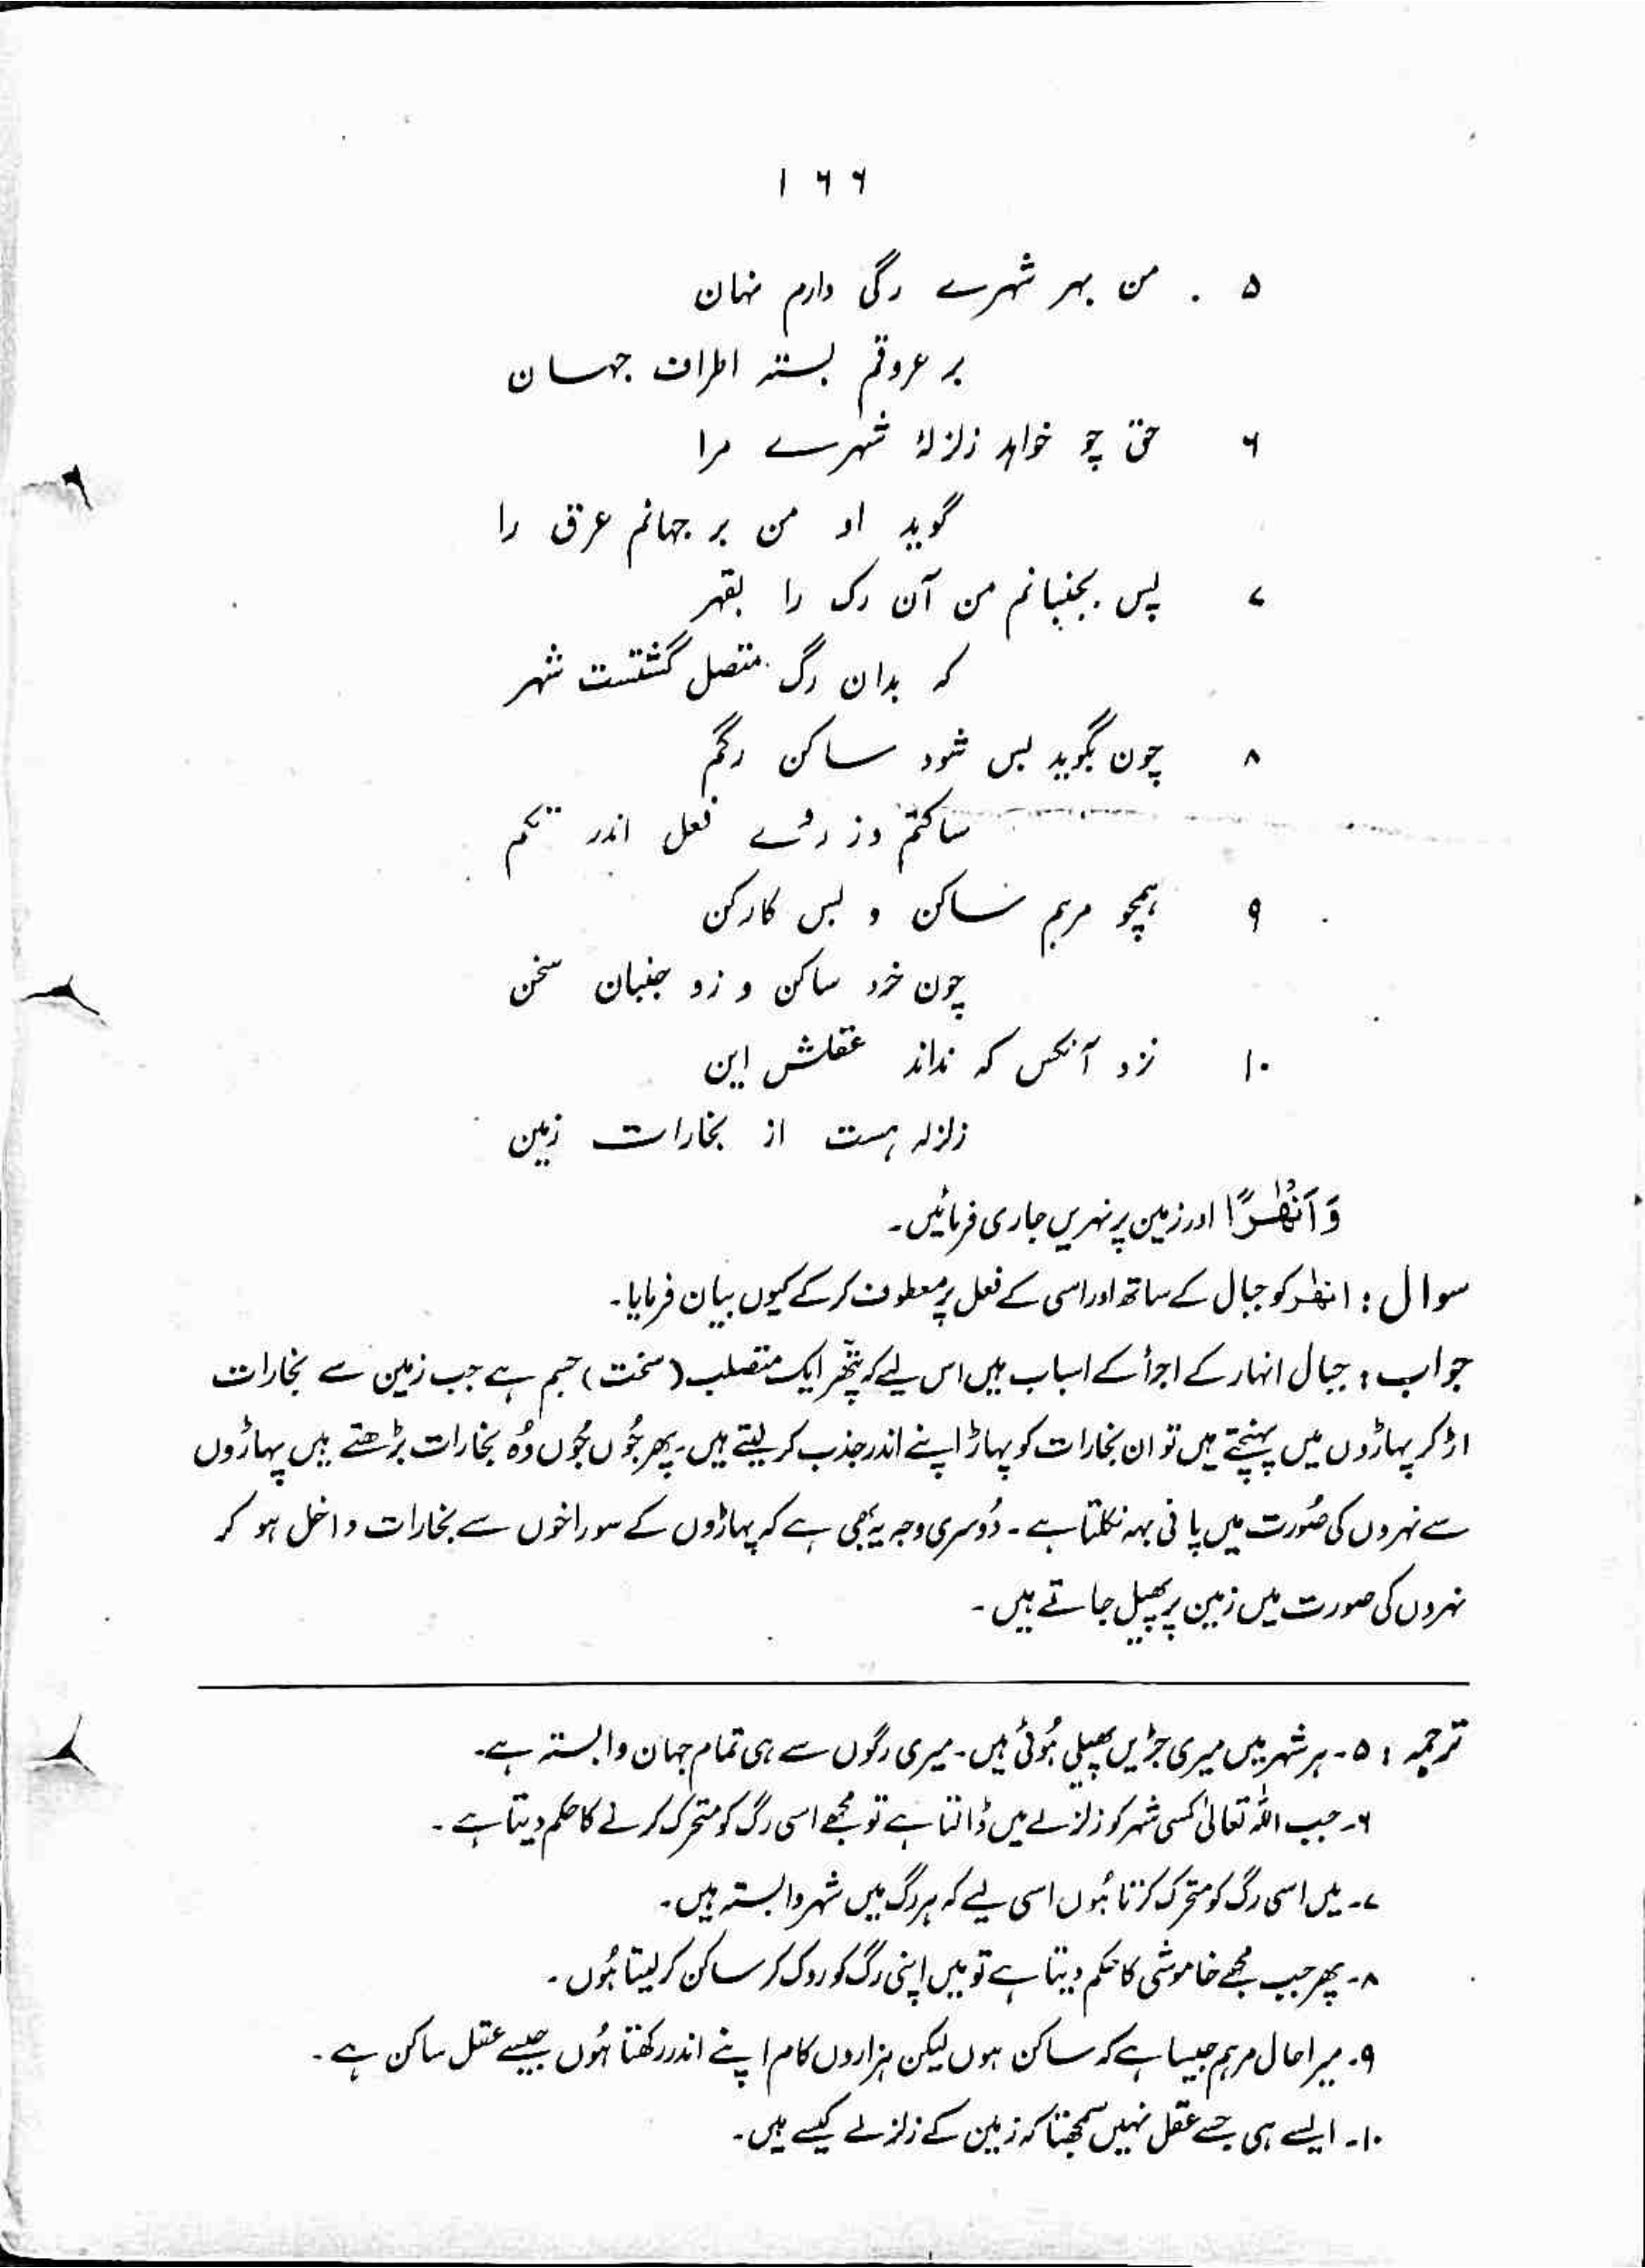 ۱۶۶
۵ . من بہر شہرے رگی دارم نہان
بر عروقم بستہ اطراف جہسان
۶ حق چو خواہد زلزلۂ شہرے مرا
گوید او من بر جہانم عرق را
۷ پس بجنبانم من آن رگ را بقہر
کہ بدان رگ متصل گشتست شہر
۸ چون بگوید بس شود ساکن رگم
ساکنم وز روے فعل اندر تگم
۹ ہمچو مرہم ساکن و بس کارکن
چون خرد ساکن و زو جنبان سخن
۱۰ نزد آنکس کہ نداند عقلش این
زلزلہ ہست از بخارات زمین
وَاَنْھٰرًا اور زمین پر نہریں جاری فرمائیں۔
سوال : انھٰر کو جبال کے ساتھ اور اسی کے فعل پر معطوف کرکے کیوں بیان فرمایا۔
جواب : جبال انہار کے اجرأ کے اسباب ہیں اس لیے کہ پتھّر ایک متصلب (سخت) جسم ہے جب زمین سے بخارات
اڑ کر پہاڑوں میں پہنچتے ہیں تو ان بخارات کو پہاڑ اپنے اندر جذب کر لیتے ہیں۔ پھر جُوں جُوں وُہ بخارات بڑھتے ہیں پہاڑوں
سے نہروں کی صُورت میں پانی بہہ نکلتا ہے۔ دُوسری وجہ یہ بھی ہے کہ پہاڑوں کے سوراخوں سے بخارات داخل ہو کر
نہروں کی صورت میں زمین پر پھیل جاتے ہیں۔
ترجمہ : ۵۔ ہر شہر میں میری جڑیں پھیلی ہُوئی ہیں۔ میری رگوں سے ہی تمام جہان وابستہ ہے۔
۶۔ جب اللہ تعالیٰ کسی شہر کو زلزلے میں ڈالتا ہے تو مجھے اسی رگ کو متحرک کرنے کا حکم دیتا ہے۔
۷۔ میں اسی رگ کو متحرک کرتا ہُوں اسی لیے کہ ہر رگ میں شہر وابستہ ہیں۔
۸۔ پھر جب مجھے خاموشی کا حکم دیتا ہے تو میں اپنی رگ کو روک کر ساکن کر لیتا ہُوں۔
۹۔ میرا حال مرہم جیسا ہے کہ ساکن ہوں لیکن ہزاروں کام اپنے اندر رکھتا ہُوں جیسے عقل ساکن ہے۔
۱۰۔ ایسے ہی جسے عقل نہیں سمجھتا کہ زمین کے زلزلے کیسے ہیں۔